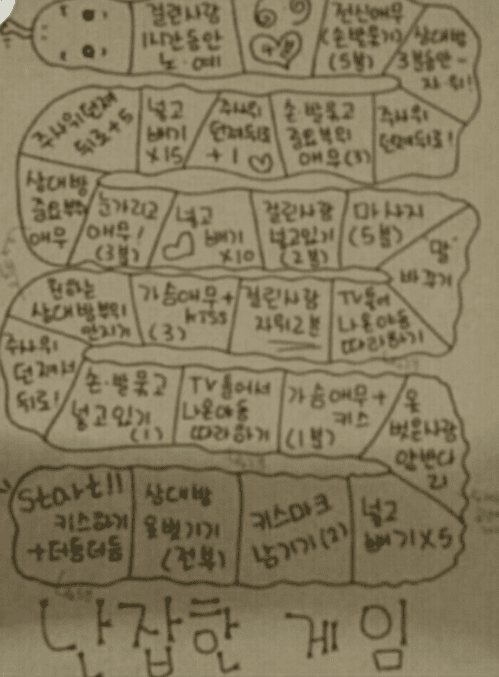 걸린사람
1시간동안
노·예
전신애무
(손발묶기)
(5분)
상대방
3분동안
자·위!
주사위던져
뒤로+5
넣고
빼기
x15
주사위
던져뒤로
+1♡
손·발묶고
중요부위
애무(3)
주사위
던져뒤로!
상대방
중요부위
애무
눈가리고
애무!
(3분)
넣고
♡빼기
x10
걸린사람
넣고있기
(2분)
마사지
(5분)
말
바꾸기
원하는
상대방부위
만지기
가슴애무+
kiss
(3)
걸린사람
자위2분
TV틀어
나온야동
따라하기
주사위
던져서
뒤로!
손·발묶고
넣고있기
(1)
TV틀어서
나온야동
따라하기
가슴애무+
키스
(1분)
옷
벗은사람
암반다
리
Start!!
키스하기
+더듬더듬
상대방
옷벗기기
(전부)
키스마크
남기기(2)
넣고
빼기x5
난잡한 게임